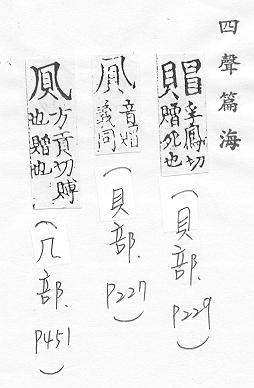 四聲篇海
賵
孚鳳切
贈死也
(貝部. P229)
音賵
義同
(貝部. P227)
方貢切賻
也贈也
(几部. P451)